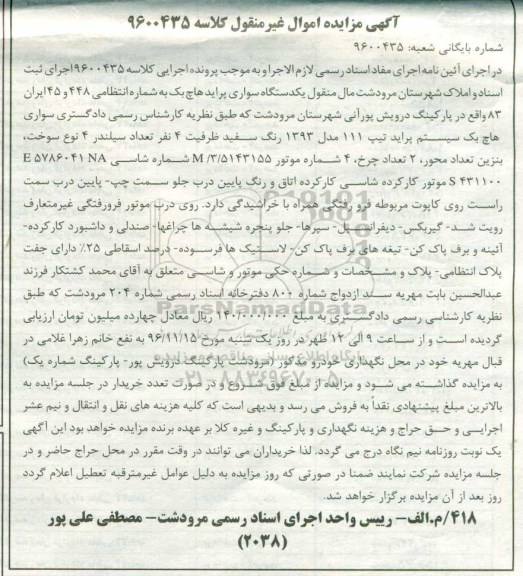 آگهی مزایده اموال غیرمنقول کلاسه ۹۶۰۰۴۳۵
شماره بایگانی شعبه: ۹۶۰۰۴۳۵
در اجرای آئین نامه اجرای مفاد اسناد رسمی لازم الاجرا و به موجب پرونده اجرایی کلاسه ۹۶۰۰۴۳۵ اجرای ثبت
اسناد و املاک شهرستان مرودشت مال منقول یکدستگاه سواری پراید هاچ بک به شماره انتظامی ۴۴۸ و ۴۵ ایران
۸۳ واقع در پارکینگ درویش پور آنی شهرستان مرودشت که طبق نظریه کارشناس رسمی دادگستری سواری
هاچ بک سیستم پراید تیپ ۱۱۱ مدل ۱۳۹۳ رنگ سفید ظرفیت ۴ نفر تعداد سیلندر ۴ نوع سوخت،
بنزین تعداد محور، ۲ تعداد چرخ، ۴ شماره موتور M /۳/۵۱۴۳۱۵۵ شماره شاسی E ۵۷۸۶۰۴۱ NA
S ۴۳۱۱۰۰ موتور کارکرده شاسی کارکرده اتاق و رنگ پایین درب جلو سمت چپ- پایین درب سمت
راست روی کاپوت مربوطه فرو رفتگی همراه با خراشیدگی دارد. روی درب موتور فرورفتگی غیرمتعارف
رویت شد- گیربکس- دیفرانسیل- سپرها- جلو پنجره شیشه ها چراغها- صندلی و داشبورد کارکرده-
آئینه و برف پاک کن- تیغه های برف پاک کن- لاستیک ها فرسوده- درصد اسقاطی ۲۵٪ دارای جفت
پلاک انتظامی- پلاک و مشخصات و شماره حکی موتور و شاسی متعلق به آقای محمد کشتکار فرزند
عبدالحسین بابت مهریه سند ازدواج شماره ۸۰۰ دفترخانه اسناد رسمی شماره ۲۰۴ مرودشت که طبق
نظریه کارشناسی رسمی دادگستری به مبلغ ۱۴۰/۰۰۰/۰۰۰ ریال معادل چهارده میلیون تومان ارزیابی
گردیده است و از ساعت ۹ الی ۱۲ ظهر در روز یک شنبه مورخ ۹۶/۱۱/۱۵ به نفع خانم زهرا غلامی در
قبال مهریه خود در محل نگهداری خودرو مذکور (مرودشت پارکینگ درویش پور- پارکینگ شماره یک)
به مزایده گذاشته می شود و مزایده از مبلغ فوق شروع و در صورت تعدد خریدار در جلسه مزایده به
بالاترین مبلغ پیشنهادی نقداً به فروش می رسد و بدیهی است که کلیه هزینه های نقل و انتقال و نیم عشر
اجرایی و حق حراج و هزینه نگهداری و پارکینگ و غیره کلا بر عهده برنده مزایده خواهد بود این آگهی
یک نوبت روزنامه نیم نگاه درج می گردد. لذا خریداران می توانند در وقت مقرر در محل حراج حاضر و در
جلسه مزایده شرکت نمایند ضمنا در صورتی که روز مزایده به دلیل عوامل غیرمترقبه تعطیل اعلام گردد
روز بعد از آن مزایده برگزار خواهد شد.
۴۱۸/م.الف- رییس واحد اجرای اسناد رسمی مرودشت- مصطفی علی پور
(۲۰۳۸)